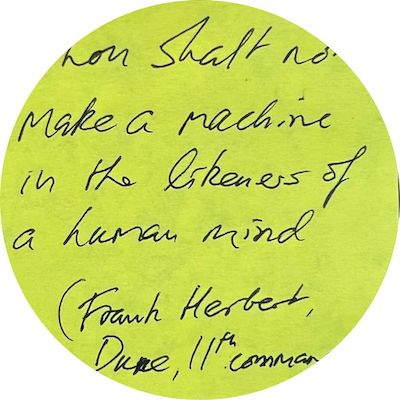 hou Shalt no
Make a machine
in the likeness of
a human mind
(Frank Herbert,
Dune, 11th comman